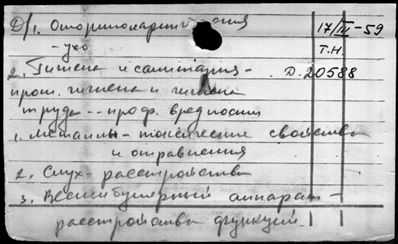 D/1. Оториноларингология 17/III-59
- ухо Т.Н.
2. Гигиена и санитария - D. 20588
пром. гигиена и гигиена
труда -- проф. вредности
1. Металлы - токсические свойства
и отравления
2. Слух - расстройства
3. Вестибулярный аппарат -
расстройства функций.